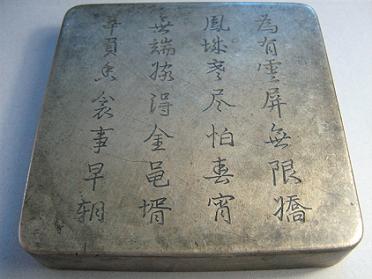 為有雲屏無限嬌
鳳城寒尽怕春宵
無端嫁得金龜壻
辜負香衾事早朝